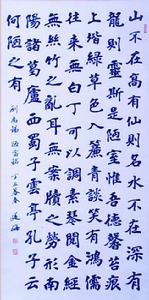 山不在高有仙則名水不在深有
龍則靈斯是陋室惟吾德馨苔痕
上堦綠草色入簾青談笑有鴻儒
往來無白丁可以調素琴閱金經
無絲竹之亂耳無案牘之勞形南
陽諸葛廬西蜀子雲亭孔子云
何陋之有
劉禹錫 陋室銘